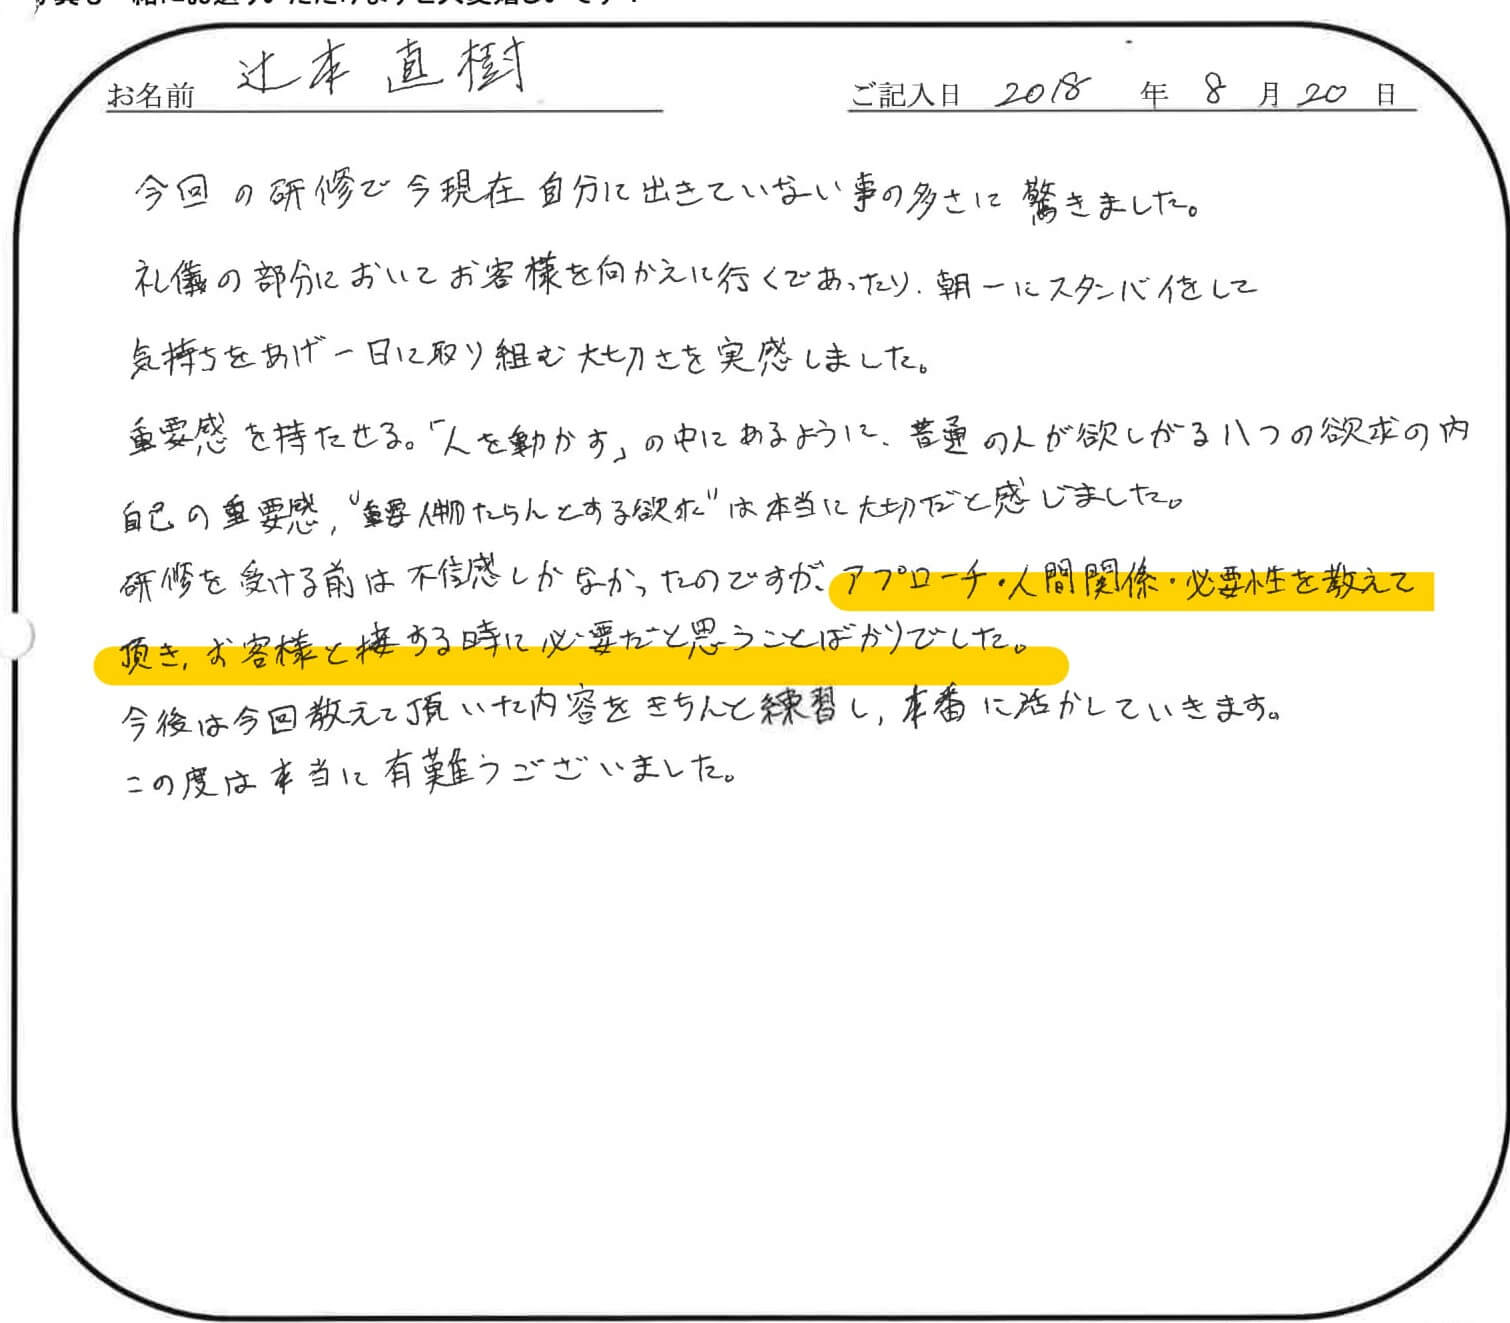 お名前 辻本 直樹 ご記入日 2018 年 8 月 20 日
今回の研修で今現在自分に出きていない事の多さに驚きました。
礼儀の部分においてお客様を向かえに行くであったり、朝一にスタンバイをして
気持ちをあげ一日に取り組む大切さを実感しました。
重要感を持たせる。「人を動かす」の中にあるように、普通の人が欲しがる八つの欲求の内
自己の重要感,"重要人物たらんとする欲求"は本当に大切だと感じました。
研修を受ける前は不信感しかなかったのですが、アプローチ・人間関係・必要性を教えて
頂き、お客様と接する時に必要だと思うことばかりでした。
今後は今回教えて頂いた内容をきちんと練習し、本番に活かしていきます。
この度は本当に有難うございました。